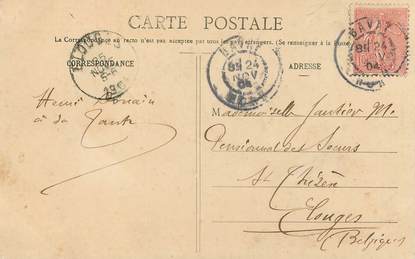 CARTE POSTALE
La Correspondance au recto n'est pas acceptée par tous les pays étrangers. (Se renseigner à la Poste)
CORRESPONDANCE
ADRESSE
BAVAY
24
NOV
04
NORD
BAVAY
24
04
ELOUGES
NOV
Henri
à sa Tante
Mademoiselle Gautier M.
Pensionnat des Soeurs
St Thérèse
Elouges
Belgique